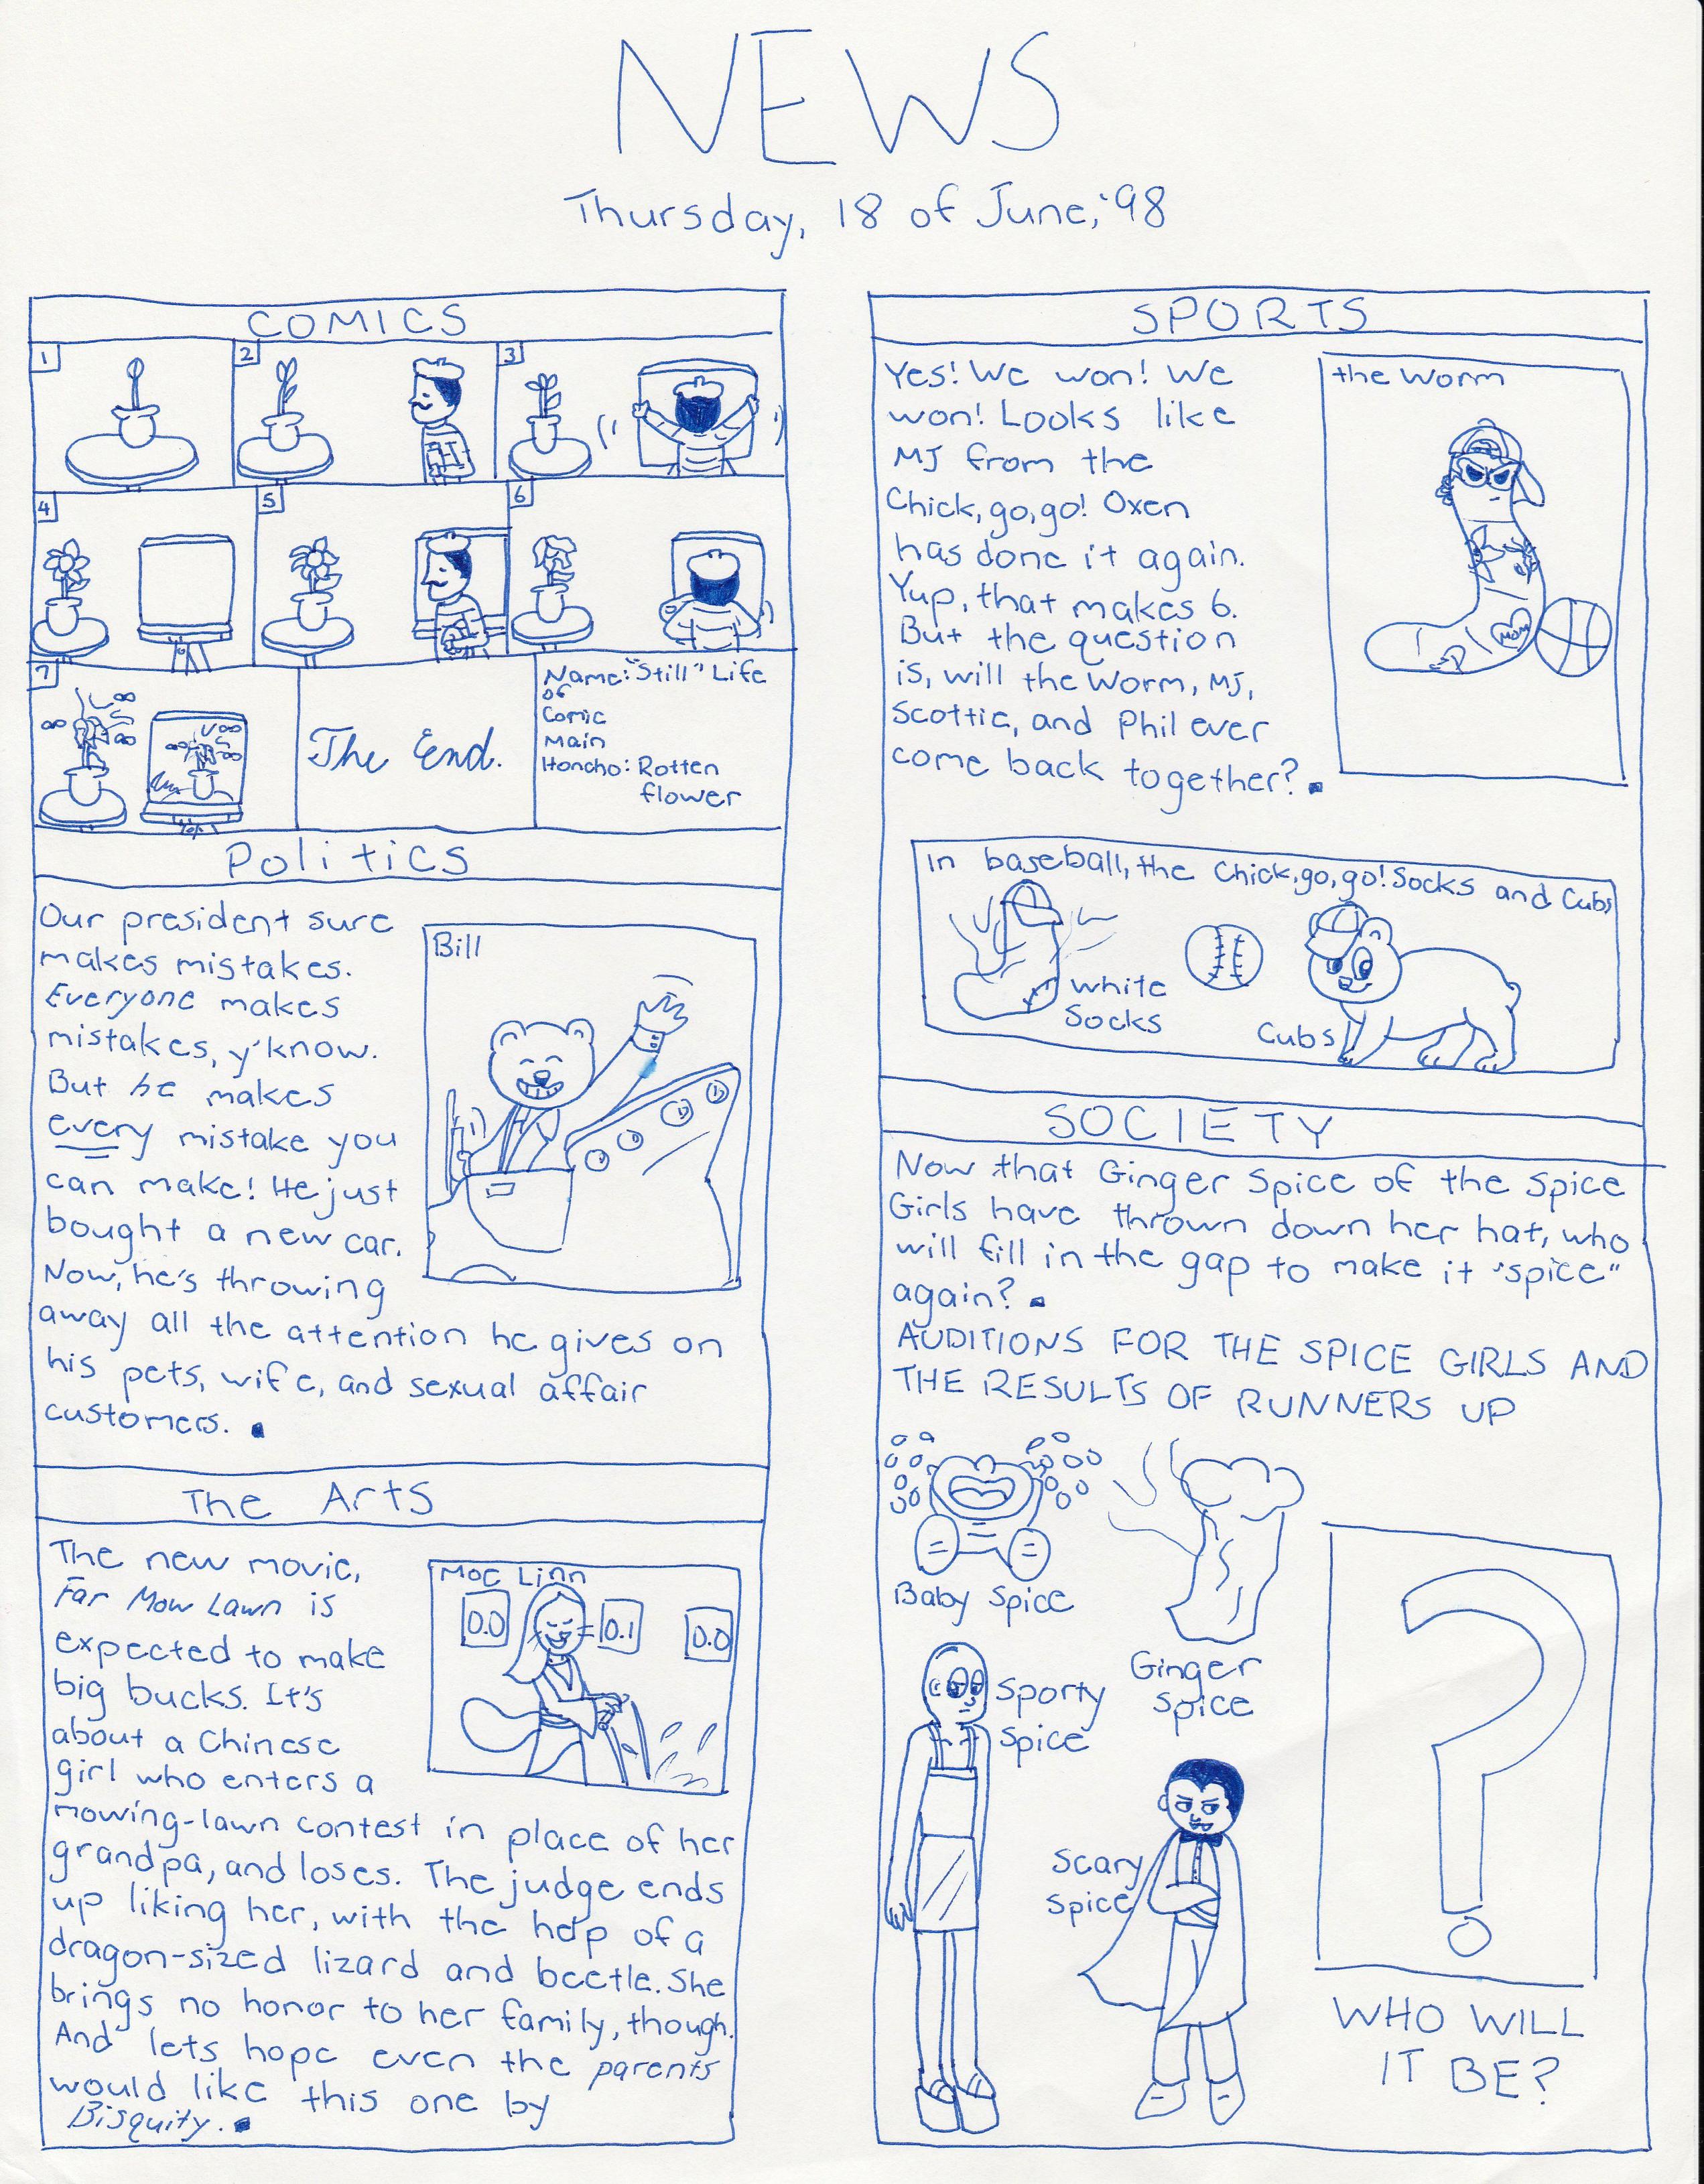 NEWS
Thursday, 18 of June, '98
COMICS
1
2
3
4
5
6
7
The End.
Name: "Still" Life
of
Comic
Main
Honcho: Rotten
flower
Politics
Our president sure
makes mistakes.
Everyone makes
mistakes, y'know.
But he makes
every mistake you
can make! He just
bought a new car.
Now, he's throwing
away all the attention he gives on
his pets, wife, and sexual affair
customers.
Bill
The Arts
The new movie,
Far Mow Lawn is
expected to make
big bucks. It's
about a Chinese
girl who enters a
mowing-lawn contest in place of her
grandpa, and loses. The judge ends
up liking her, with the help of a
dragon-sized lizard and beetle. She
brings no honor to her family, though.
And lets hope even the parents
would like this one by
Bisquity.
Moc Linn
0.0
0.1
0.0
SPORTS
Yes! We won! We
won! Looks like
MJ from the
Chick, go, go! Oxen
has done it again.
Yup, that makes 6.
But the question
is, will the Worm, MJ,
Scottie, and Phil ever
come back together?
the Worm
MOM
In baseball, the Chick, go, go! Socks and Cubs
White
Socks
Cubs
SOCIETY
Now that Ginger Spice of the Spice
Girls have thrown down her hat, who
will fill in the gap to make it "spice"
again?
AUDITIONS FOR THE SPICE GIRLS AND
THE RESULTS OF RUNNERS UP
Baby Spice
Ginger
Spice
Sporty
Spice
Scary
Spice
?
WHO WILL
IT BE?